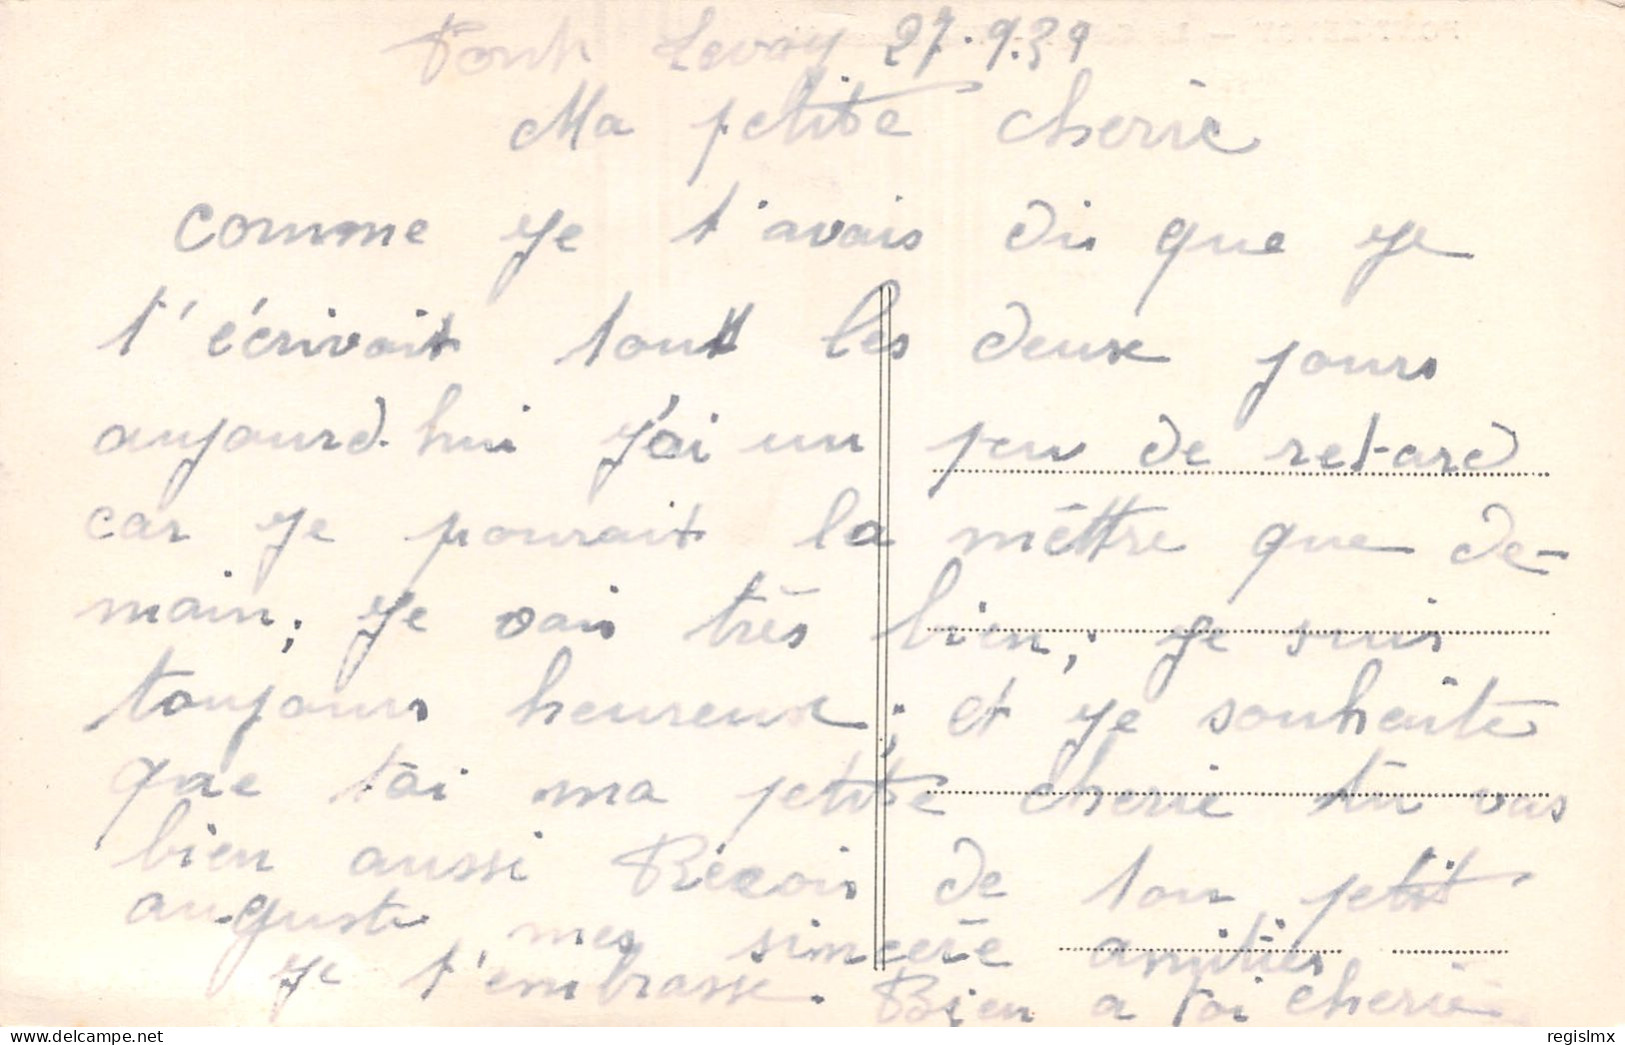 Pont Levoy 27.9.39
Ma petite cherie
comme je t'avais dis que je
t'écrivait tout les deux jours
aujourd.hui j'ai un peu de retard
car je pourait la méttre que de-
main; je vais très bien; je suis
toujours heureux; et je souhaite
que tai ma petite cherie tu vas
bien aussi Recois de ton petit
auguste mes sincere amitiés
je t'embrasse. Bien a toi cherie
regislmx